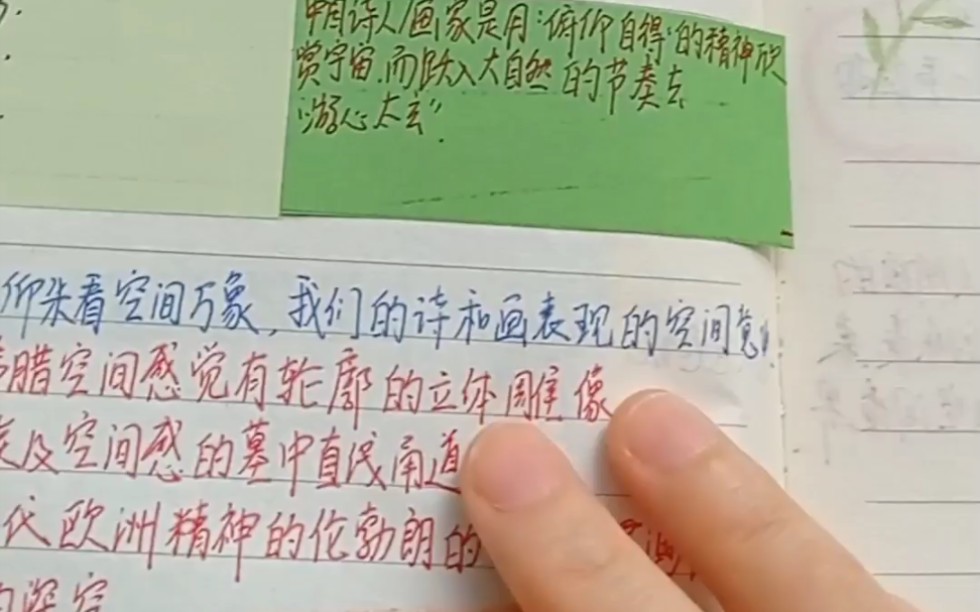 中国诗人/画家是用“俯仰自得”的精神欣
赏宇宙,而跃入大自然的节奏去
“游心太玄”.
仰来看空间万象,我们的诗和画表现的空间意
腊空间感觉有轮廓的立体雕像
及空间感的墓中直线甬道
代欧洲精神的伦勃朗的
的深空